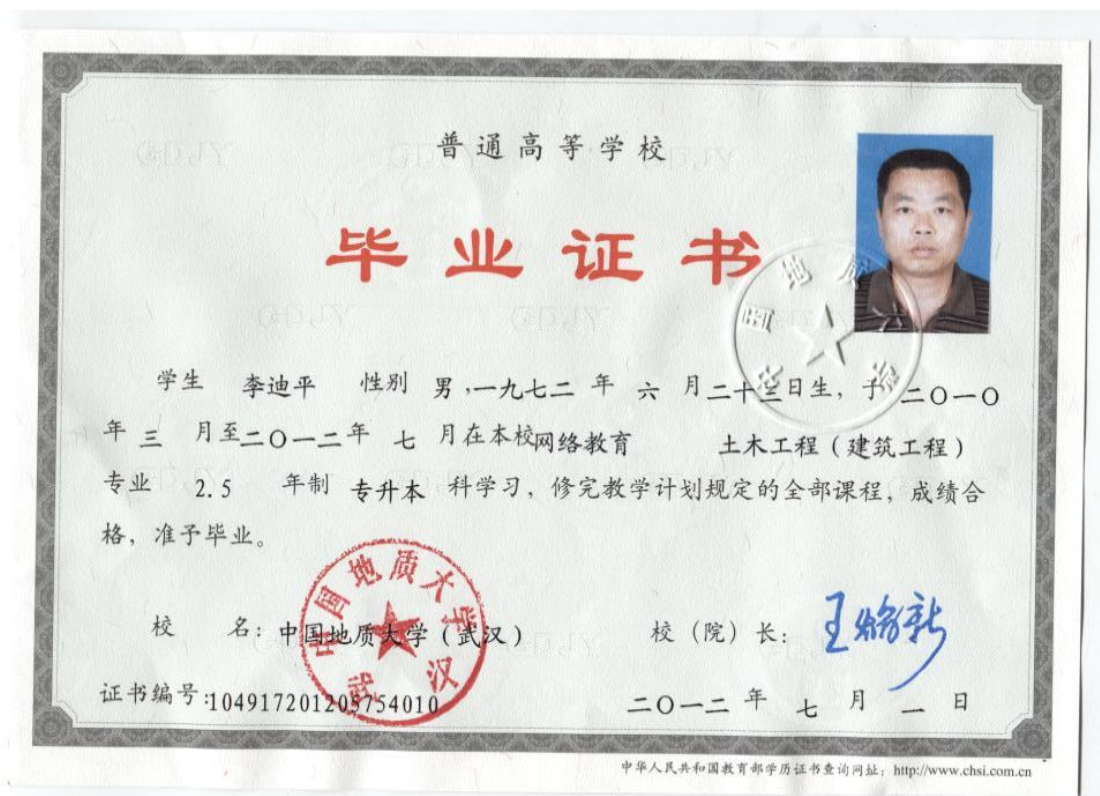 普通高等学校
毕业证书
学生 李迪平 性别 男,一九七二年 六 月二十三日生, 于 二〇一〇
年 三 月至二〇一二年 七 月在本校网络教育 土木工程(建筑工程)
专业 2.5 年制 专升本 科学习, 修完教学计划规定的全部课程, 成绩合
格, 准予毕业。
校 名: 中国地质大学(武汉) 校(院)长: 王焰新
证书编号:104917201205754010 二〇一二年 七 月 一 日
中国地质大学
武汉
中华人民共和国教育部学历证书查询网址: http://www.chsi.com.cn